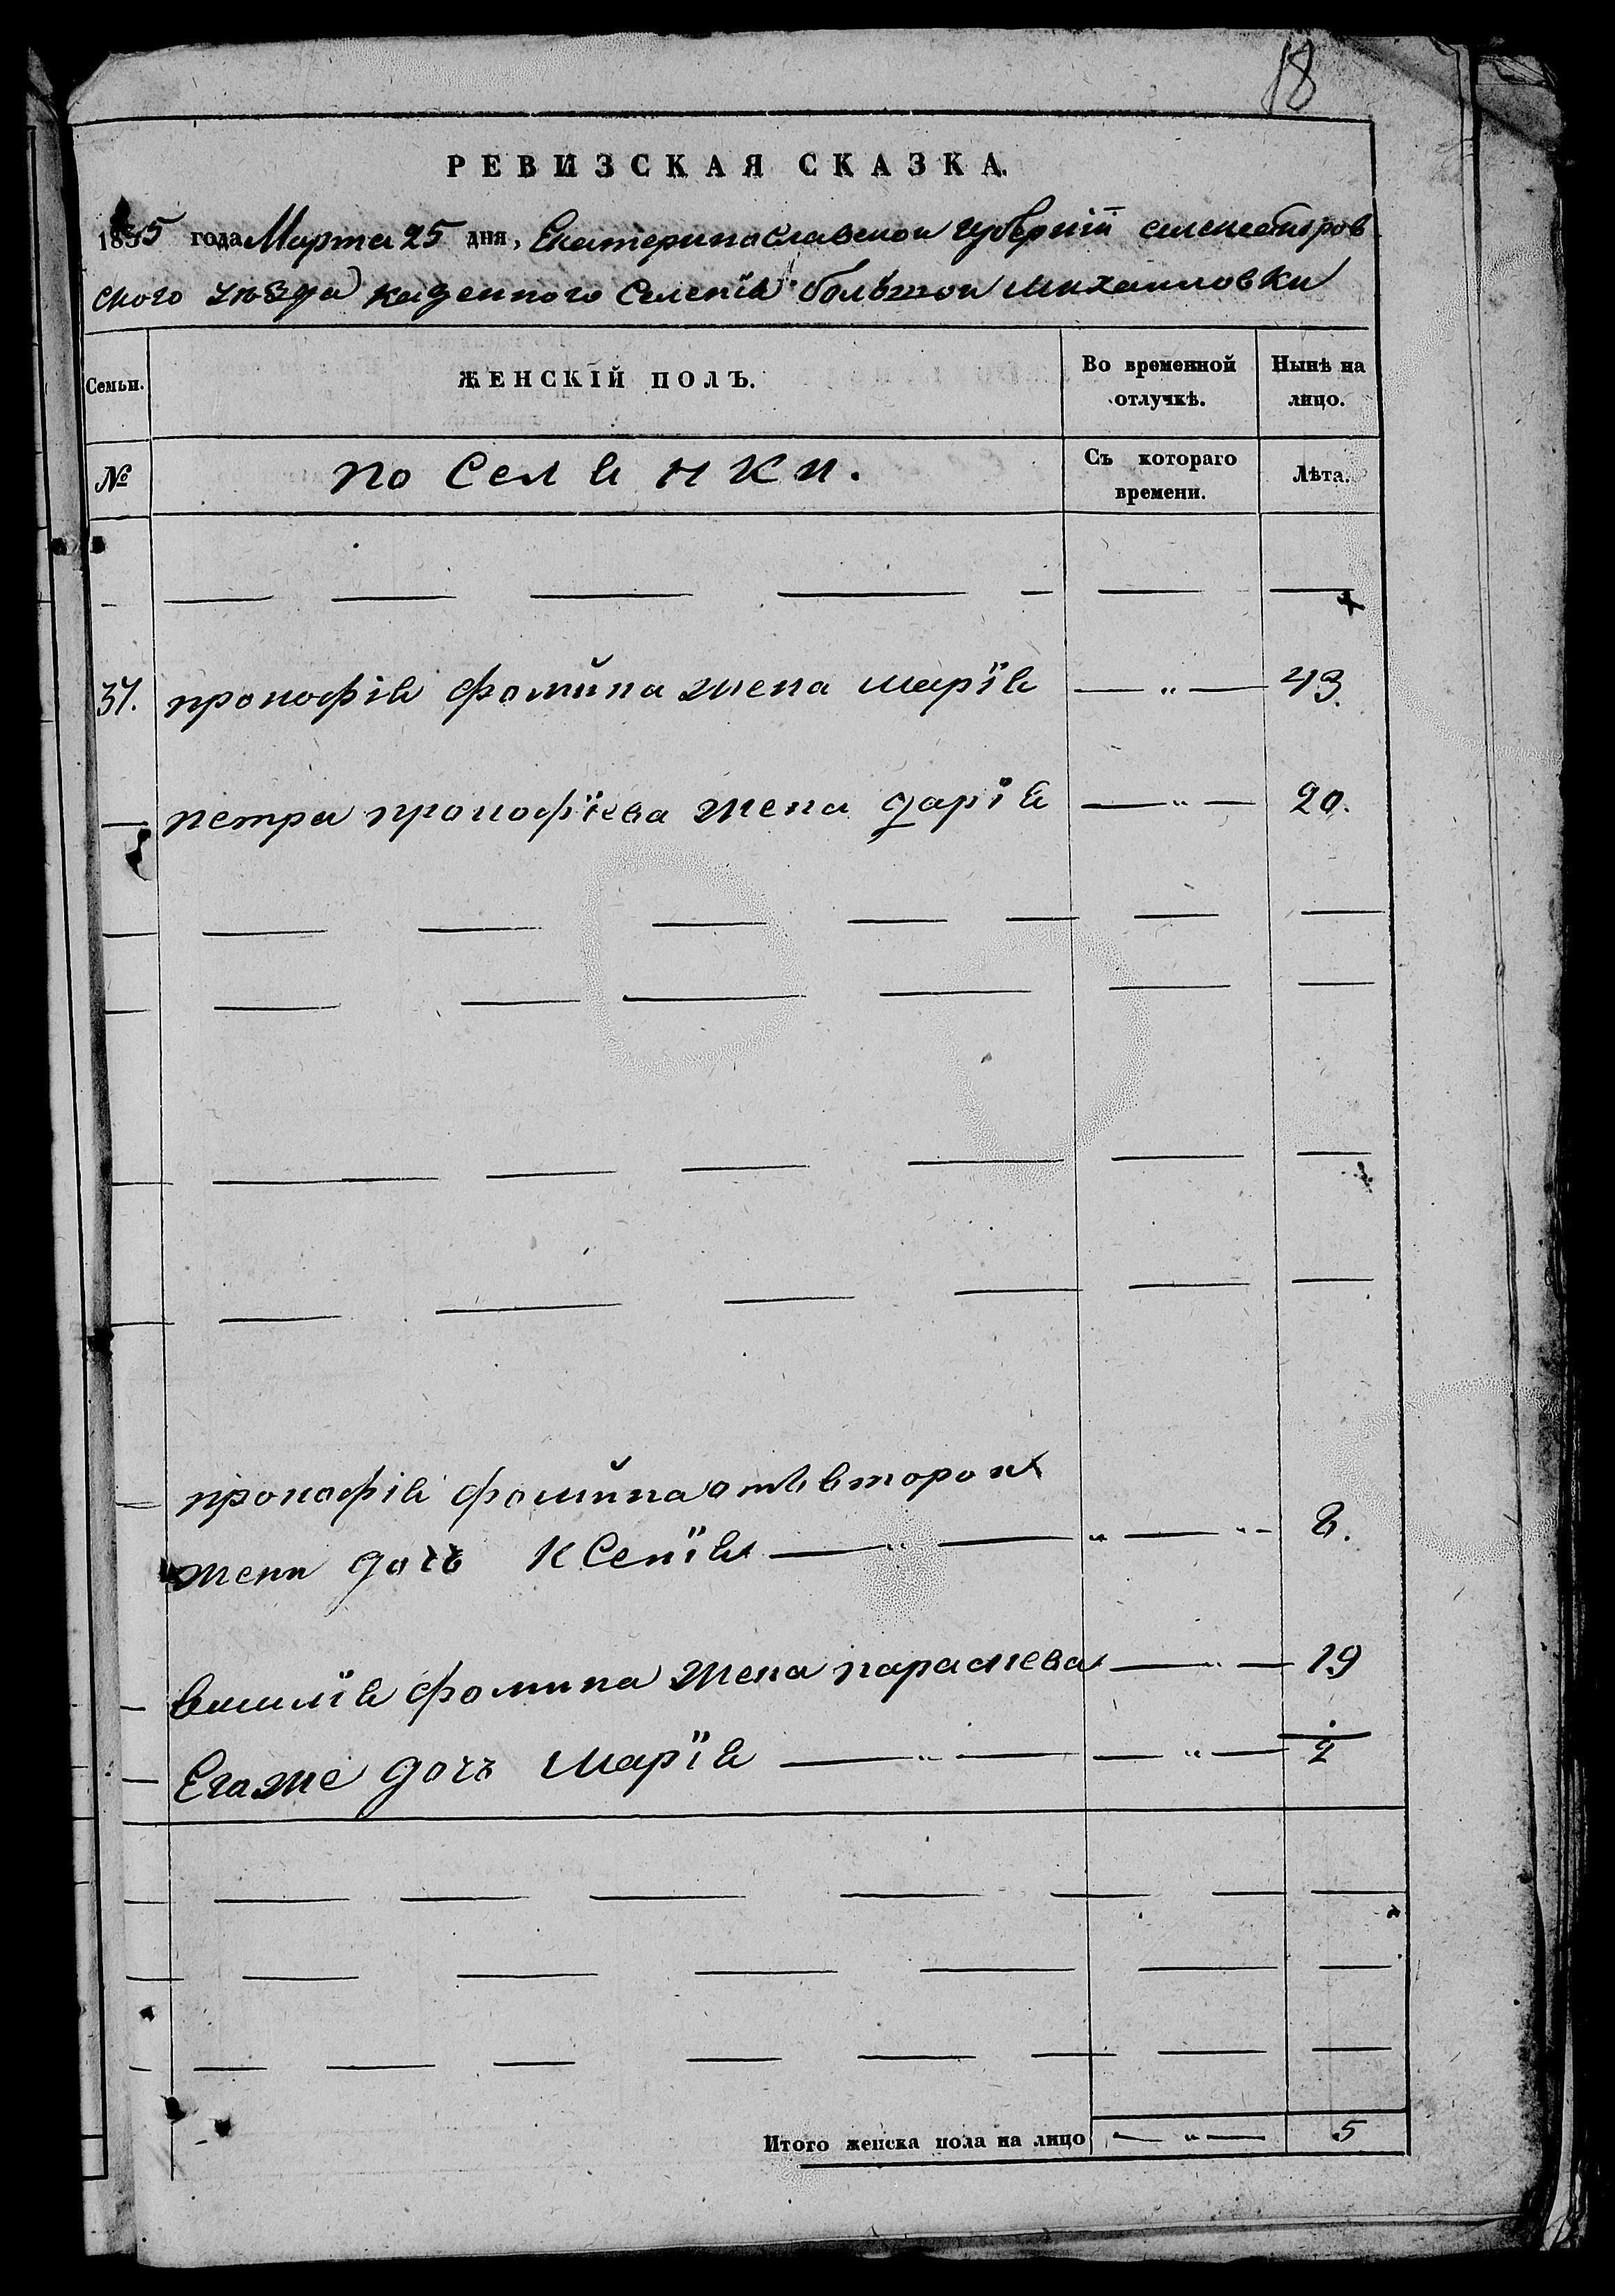 18
РЕВИЗСКАЯ СКАЗКА.
1835 года Марта 25 дня, Екатеринославской губерніи
ского уѣзда казенного Селенія большой Михаиловки
Семьи. ЖЕНСКІЙ ПОЛЪ. Во временной отлучкѣ. Нынѣ на лицо.
№ поселянки. Съ котораго времени. Лѣта.
37. прокофія фомина жена марія — „ — 43.
— петра прокофіева жена дарія — „ — 20.
— прокофія фомина отъ второй
жены дочъ Ксенія — „ — „ — „ — 8.
— василія фомина жена параскева — „ — 19
— Егоже дочъ марія — „ — — „ —
Итого женска пола на лицо — „ — 5